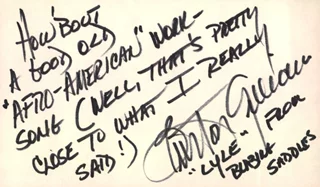 HOW 'BOUT
A GOOD OLD
"AFRO-AMERICAN" WORK-
SONG (WELL, THAT'S PRETTY
CLOSE TO WHAT I REALLY
SAID!)
Burton Gilliam
"LYLE" FROM
BLAZING
SADDLES